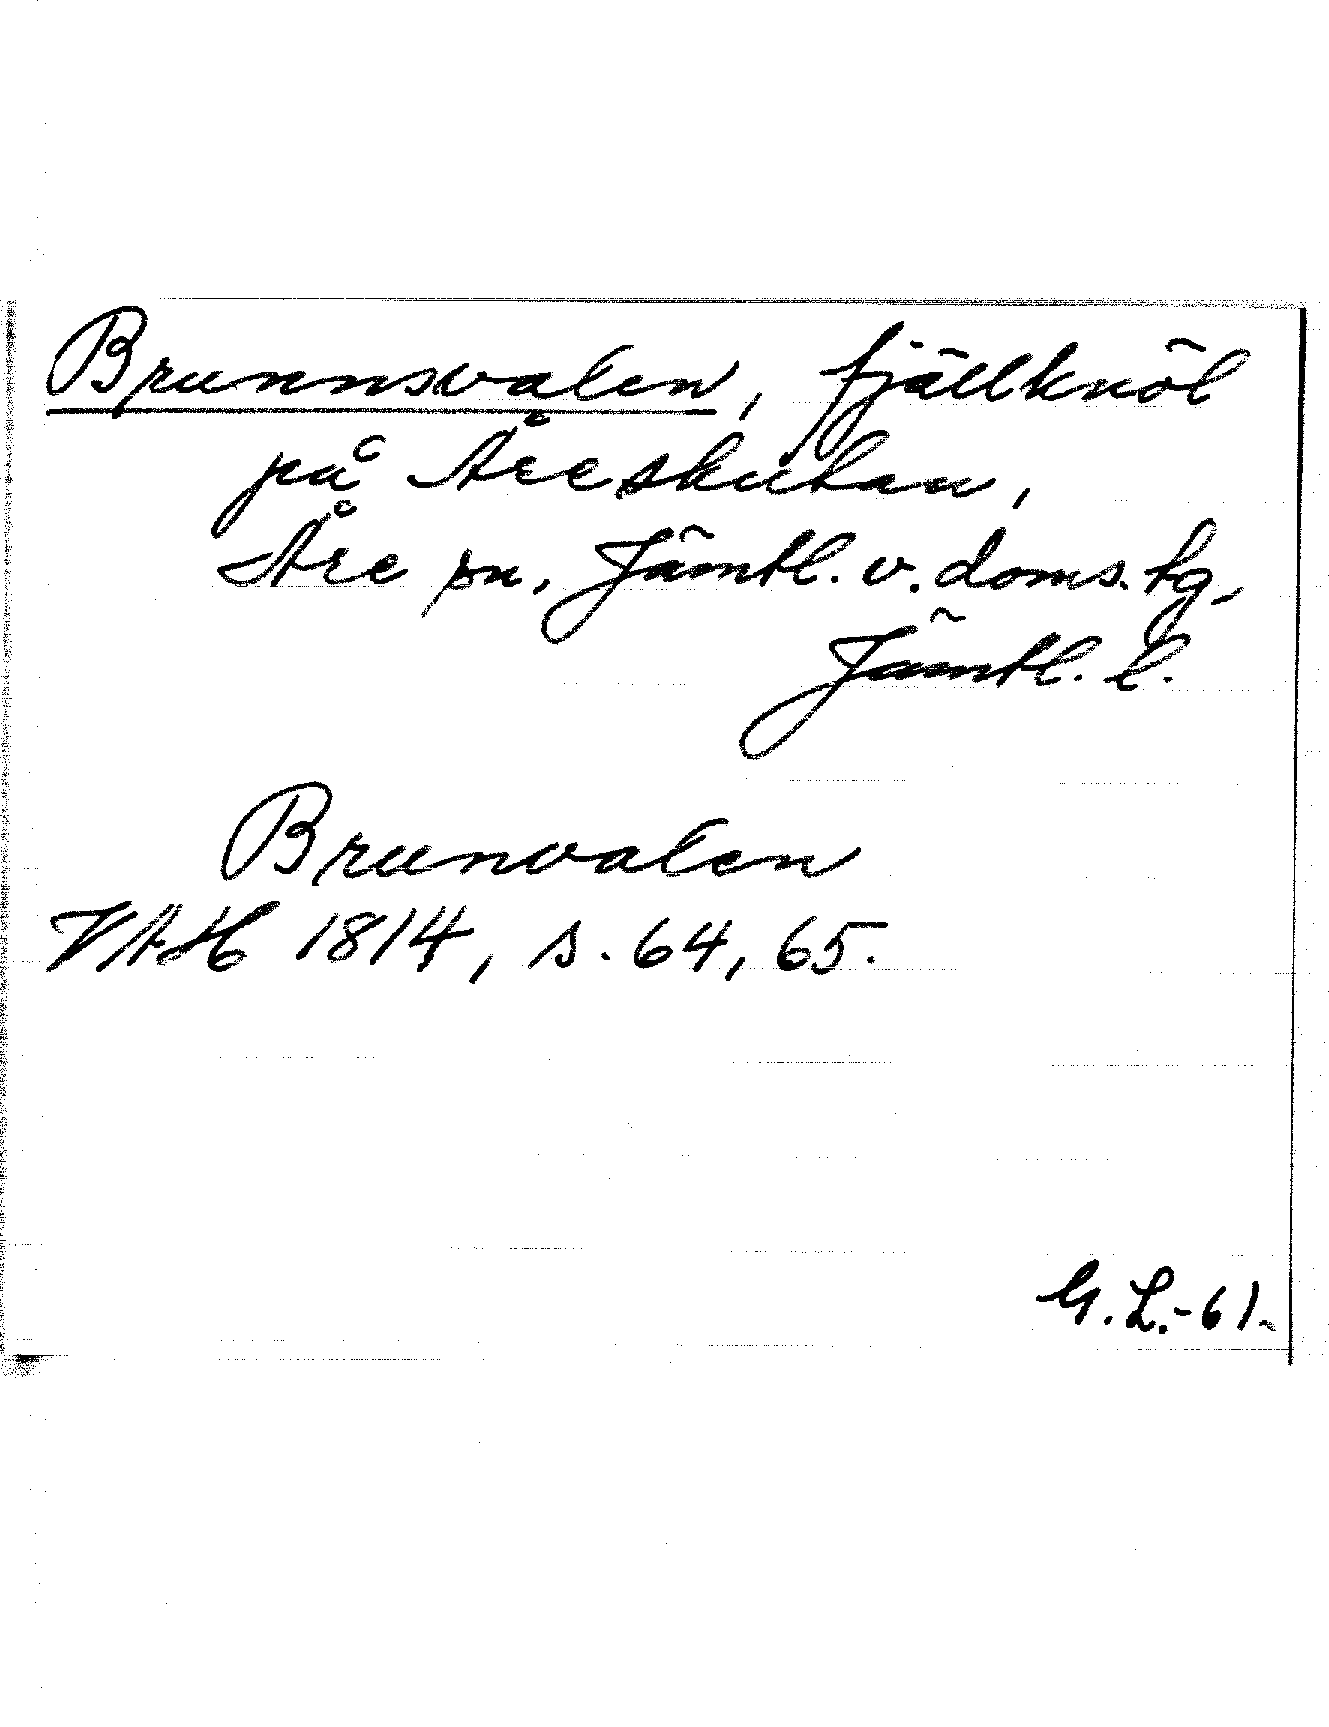 Brunnsvalen, fjällknöl
på Åreskutan,
Åre sn, Jämtl. v. doms. tg,
Jämtl. l.
Brunvalen
VAH 1814, s. 64, 65.
G. L. -61.